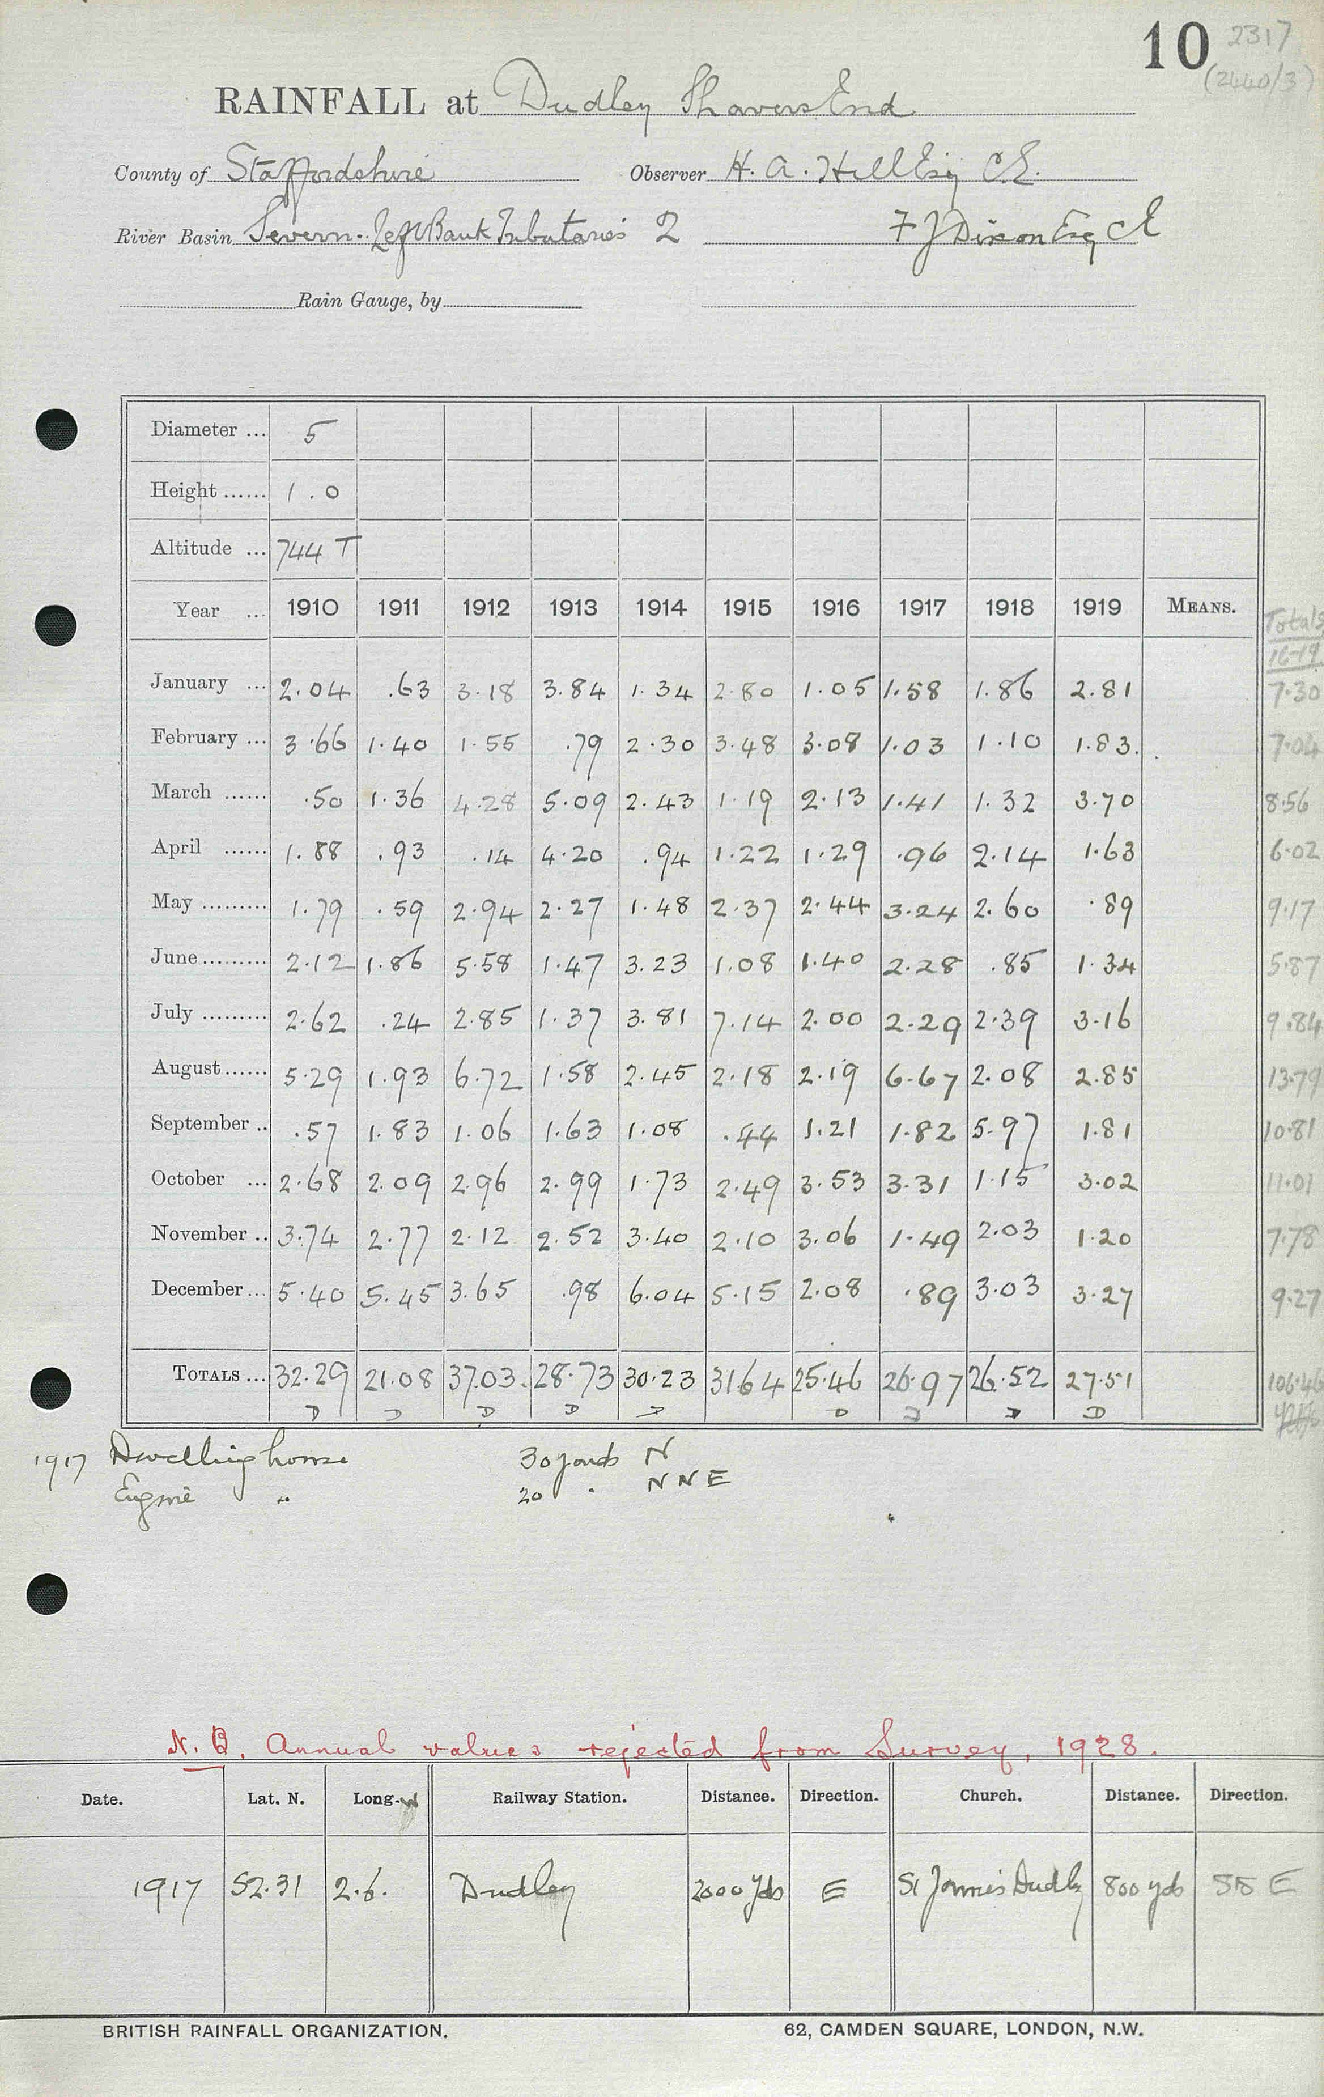 10 2317
(2440/3)
RAINFALL at Dudley Shavers End
County of Staffordshire Observer H. A. Hill Esq C.E.
River Basin Severn. Left Bank Tributaries 2 F J Dixon Esq C E
Rain Gauge, by
Diameter ... 5
Height ...... 1.0
Altitude ... 744 T
Year ... 1910 1911 1912 1913 1914 1915 1916 1917 1918 1919 MEANS. Totals 16-19
January ... 2.04 .63 3.18 3.84 1.34 2.80 1.05 1.58 1.86 2.81 7.30
February ... 3.66 1.40 1.55 .79 2.30 3.48 3.08 1.03 1.10 1.83. 7.04
March ...... .50 1.36 4.28 5.09 2.43 1.19 2.13 1.41 1.32 3.70 8.56
April ...... 1.88 .93 .14 4.20 .94 1.22 1.29 .96 2.14 1.63 6.02
May ......... 1.79 .59 2.94 2.27 1.48 2.37 2.44 3.24 2.60 .89 9.17
June ......... 2.12 1.86 5.58 1.47 3.23 1.08 1.40 2.28 .85 1.34 5.87
July ......... 2.62 .24 2.85 1.37 3.81 7.14 2.00 2.29 2.39 3.16 9.84
August ...... 5.29 1.93 6.72 1.58 2.45 2.18 2.19 6.67 2.08 2.85 13.79
September .. .57 1.83 1.06 1.63 1.08 .44 1.21 1.82 5.97 1.81 10.81
October ... 2.68 2.09 2.96 2.99 1.73 2.49 3.53 3.31 1.15 3.02 11.01
November .. 3.74 2.77 2.12 2.52 3.40 2.10 3.06 1.49 2.03 1.20 7.78
December ... 5.40 5.45 3.65 .98 6.04 5.15 2.08 .89 3.03 3.27 9.27
TOTALS ... 32.29 21.08 37.03 28.73 30.23 31.64 25.46 26.97 26.52 27.51 106.46
D D D D D D D D D
1917 Dwelling house 30 yards N
Engine " 20 " NNE
N.B. Annual values rejected from Survey, 1928.
Date. Lat. N. Long. W Railway Station. Distance. Direction. Church. Distance. Direction.
1917 52.31 2.6. Dudley 2000 yds E St James Dudley 800 yds E
BRITISH RAINFALL ORGANIZATION. 62, CAMDEN SQUARE, LONDON, N.W.